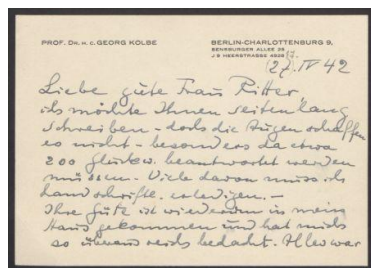 PROF. DR. H. C. GEORG KOLBE
BERLIN-CHARLOTTENBURG 9,
SENSBURGER ALLEE 26
J 9 HEERSTRASSE
27. IV 42
Liebe gute Frau Ritter
ich möchte Ihnen seitenlang
schreiben – doch die Augen schaffen
es nicht – besonders da etwa
200 Glückw. beantwortet werden
müssen. Viele davon muss ich
handschriftl. erledigen. –
Ihre Güte ist wiederum in mein
Haus gekommen und hat mich
so überaus reich bedacht. Alles war